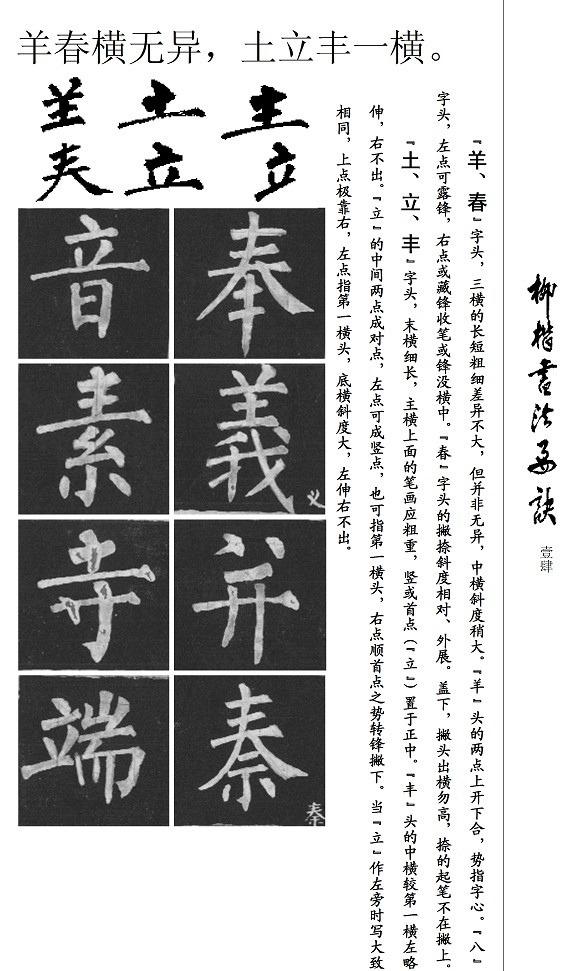 羊春横无异，土立丰一横。
柳楷書法要訣
壹肆
『羊、春』字头，三横的长短粗细差异不大，但并非无异，中横斜度稍大。『羊』头的两点上开下合，势指字心。『八』
字头，左点可露锋，右点或藏锋收笔或锋没横中。『春』字头的撇捺斜度相对、外展。盖下，撇头出横勿高，捺的起笔不在撇上。
『土、立、丰』字头，末横细长，主横上面的笔画应粗重，竖或首点（『立』）置于正中。『丰』头的中横较第一横左略
伸，右不出。『立』的中间两点成对点，左点可成竖点，也可指第一横头，右点顺首点之势转锋撇下。当『立』作左旁时写大致
相同，上点极靠右，左点指第一横头，底横斜度大，左伸右不出。
立
土
立
奉
義
义
并
秦
秦
音
素
寺
端